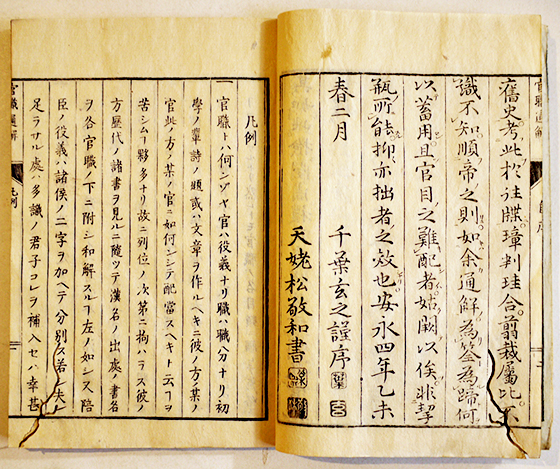 舊史考此於往牒璋判珪合剪裁屬比不
識不知順帝之則如余通解為筌為歸何
以蓄用且官目之難配者姑闕以俟非挈
瓶所能抑亦拙者之效也安永四年乙未
春二月 千葉玄之謹序
天姥松敬和書
凡例
一官職トハ何ゾヤ官ハ役義ナリ職ハ職分ナリ初
學ノ輩詩ノ題或ハ文章ヲ作ルヘキニ彼ノ方ノ某ノ
官此ノ方ノ某ノ官ニ如何シテ配當スヘキト云フヿヲ
苦シムヿ夥多ナリ故ニ列位ノ次第ニ拘ハラス彼ノ
方歴代ノ諸書ヲ見ルニ隨ツテ漢名ノ出處ノ書名
ヲ各官職ノ下ニ附シ和解スルヿ左ノ如シ陪
臣ノ役義ハ諸侯ノ二字ヲ加ヘテ分別ス若シ夫レ
足ラサル處ハ多識ノ君子コレヲ補入セハ幸甚
官職通解 凡例